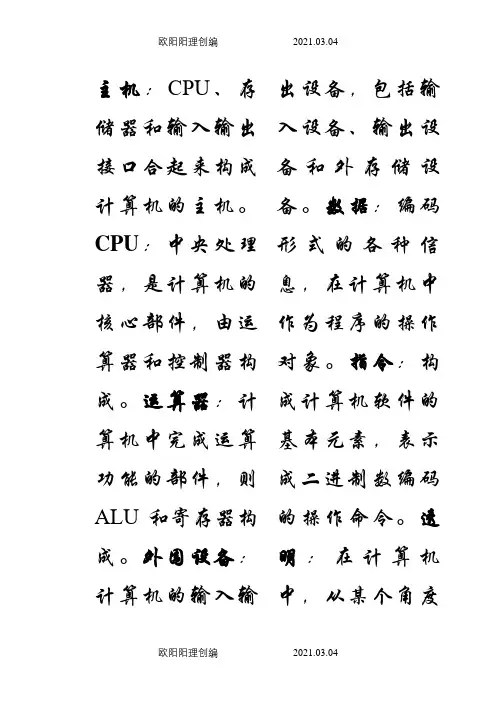 欧阳阳理创编 2021.03.04
主机：CPU、存
储器和输入输出
接口合起来构成
计算机的主机。
CPU：中央处理
器，是计算机的
核心部件，由运
算器和控制器构
成。运算器：计
算机中完成运算
功能的部件，则
ALU 和寄存器构
成。外围设备：
计算机的输入输
出设备，包括输
入设备、输出设
备和外存储设
备。数据：编码
形式的各种信
息，在计算机中
作为程序的操作
对象。指令：构
成计算机软件的
基本元素，表示
成二进制数编码
的操作命令。透
明：在计算机
中，从某个角度
欧阳阳理创编 2021.03.04